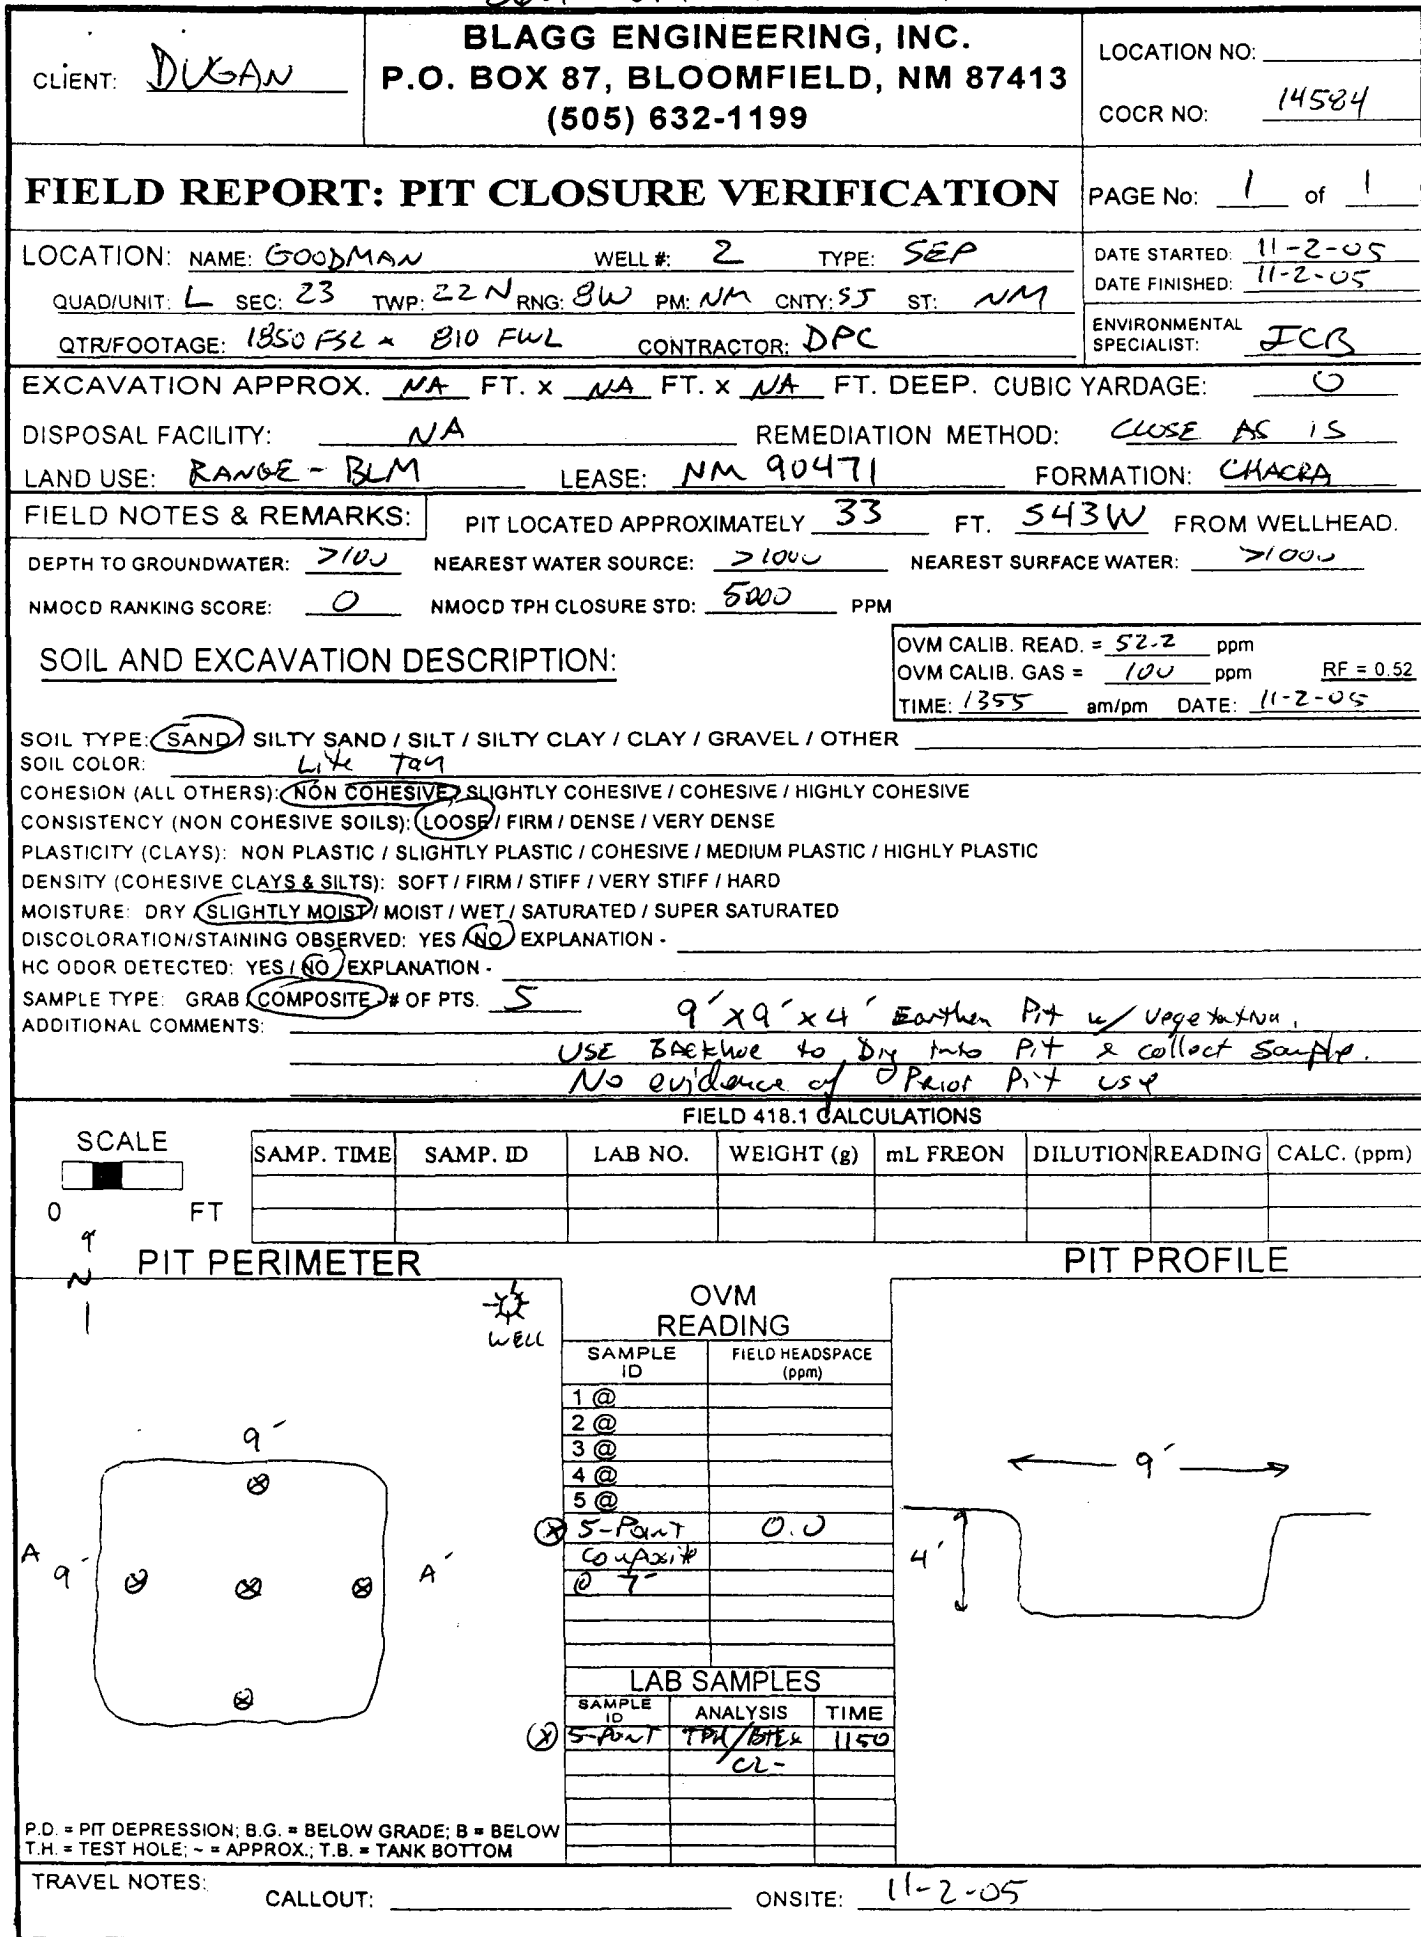 BLAGG ENGINEERING, INC.
P.O. BOX 87, BLOOMFIELD, NM 87413
(505) 632-1199
CLIENT: DUGAN
LOCATION NO:
COCR NO: 14584
FIELD REPORT: PIT CLOSURE VERIFICATION
PAGE No: 1 of 1
LOCATION: NAME: GOODMAN WELL #: 2 TYPE: SEP
QUAD/UNIT: L SEC: 23 TWP: 22N RNG: 8W PM: NM CNTY: SJ ST: NM
QTR/FOOTAGE: 1850 FSL x 810 FWL CONTRACTOR: DPC
DATE STARTED: 11-2-05
DATE FINISHED: 11-2-05
ENVIRONMENTAL
SPECIALIST: JCB
EXCAVATION APPROX. NA FT. x NA FT. x NA FT. DEEP. CUBIC YARDAGE: 0
DISPOSAL FACILITY: NA REMEDIATION METHOD: CLOSE AS IS
LAND USE: RANGE - BLM LEASE: NM 90471 FORMATION: CHACRA
FIELD NOTES & REMARKS: PIT LOCATED APPROXIMATELY 33 FT. S43W FROM WELLHEAD.
DEPTH TO GROUNDWATER: >100 NEAREST WATER SOURCE: >1000 NEAREST SURFACE WATER: >1000
NMOCD RANKING SCORE: 0 NMOCD TPH CLOSURE STD: 5000 PPM
SOIL AND EXCAVATION DESCRIPTION:
OVM CALIB. READ. = 52.2 ppm
OVM CALIB. GAS = 100 ppm RF = 0.52
TIME: 1355 am/pm DATE: 11-2-05
SOIL TYPE: SAND / SILTY SAND / SILT / SILTY CLAY / CLAY / GRAVEL / OTHER
SOIL COLOR: Lite Tan
COHESION (ALL OTHERS): NON COHESIVE / SLIGHTLY COHESIVE / COHESIVE / HIGHLY COHESIVE
CONSISTENCY (NON COHESIVE SOILS): LOOSE / FIRM / DENSE / VERY DENSE
PLASTICITY (CLAYS): NON PLASTIC / SLIGHTLY PLASTIC / COHESIVE / MEDIUM PLASTIC / HIGHLY PLASTIC
DENSITY (COHESIVE CLAYS & SILTS): SOFT / FIRM / STIFF / VERY STIFF / HARD
MOISTURE: DRY / SLIGHTLY MOIST / MOIST / WET / SATURATED / SUPER SATURATED
DISCOLORATION/STAINING OBSERVED: YES / NO EXPLANATION -
HC ODOR DETECTED: YES / NO EXPLANATION -
SAMPLE TYPE: GRAB / COMPOSITE - # OF PTS. 5
ADDITIONAL COMMENTS: 9' x 9' x 4' Earthen Pit w/ vegetation.
USE Backhoe to Dig into Pit & collect Sample.
No evidence of Prior Pit use
FIELD 418.1 CALCULATIONS
SCALE
0 FT
SAMP. TIME SAMP. ID LAB NO. WEIGHT (g) mL FREON DILUTION READING CALC. (ppm)
N
PIT PERIMETER
PIT PROFILE
WELL
9'
A 9' A'
OVM
READING
SAMPLE ID FIELD HEADSPACE (ppm)
1 @
2 @
3 @
4 @
5 @
5-Point 0.0
Composite
@ 7'
9'
4'
LAB SAMPLES
SAMPLE ID ANALYSIS TIME
5-Point TPH/BTEX 1150
CL-
P.D. = PIT DEPRESSION; B.G. = BELOW GRADE; B = BELOW
T.H. = TEST HOLE; ~ = APPROX.; T.B. = TANK BOTTOM
TRAVEL NOTES: CALLOUT: ONSITE: 11-2-05